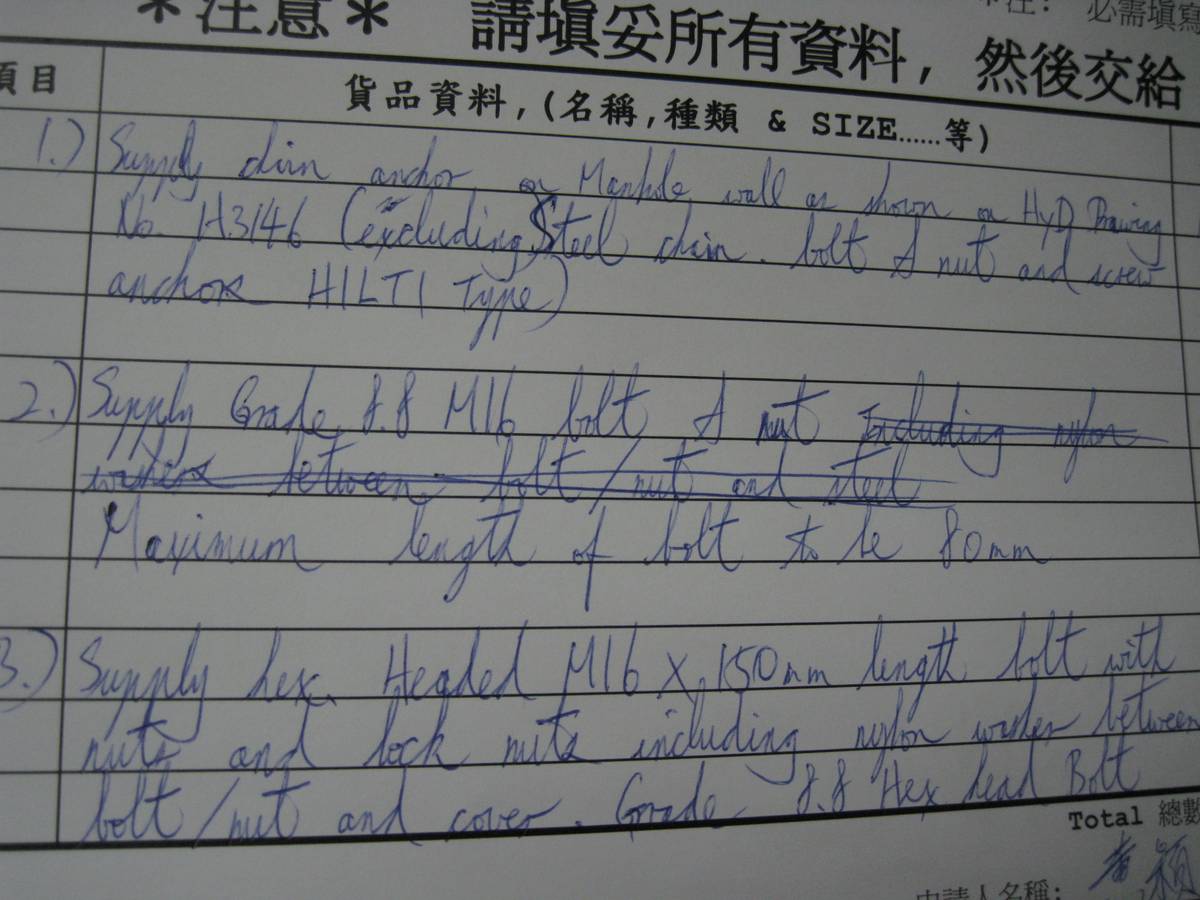 注: 必需填寫
*注意* 請填妥所有資料, 然後交給
項目 貨品資料,(名稱,種類 & SIZE......等)
1.) Supply chain anchor on Manhole wall as shown on HyD Drawing
No. H3146 (excluding Steel chain. bolt & nut and screw
anchor HILTI Type)
2.) Supply Grade 8.8 M16 bolt & nut Including nylon
washer between bolt/nut and steel
Maximum length of bolt to be 80mm
3.) Supply hex. Headed M16 X 150mm length bolt with
nuts and lock nuts including nylon washer between
bolt/nut and cover. Grade 8.8 Hex head Bolt
Total 總數
申請人名稱: